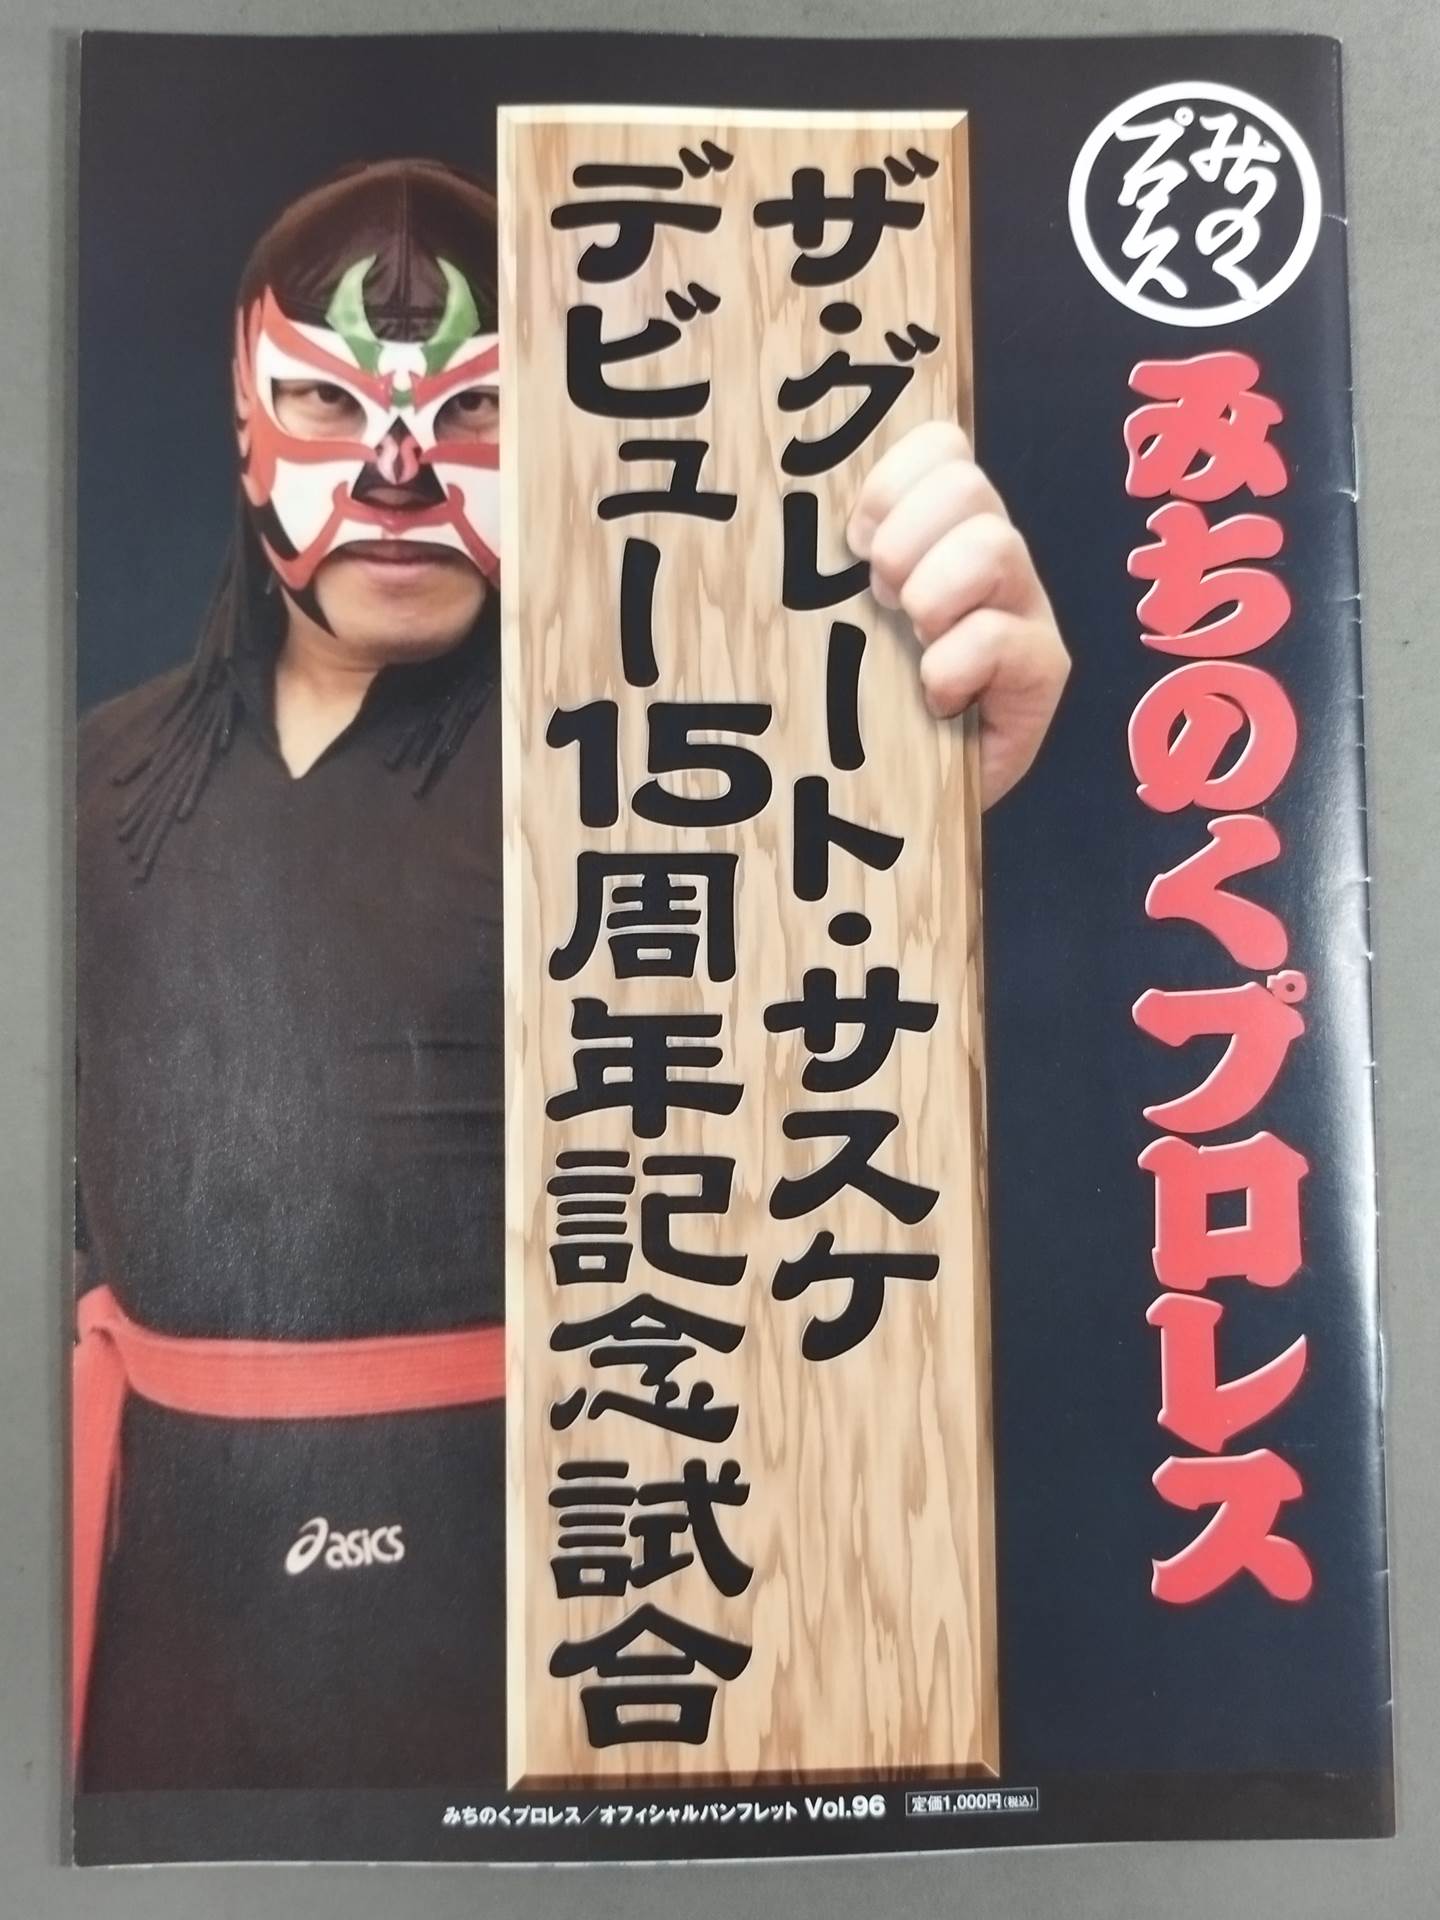 みちのく
プロレス
みちのくプロレス
ザ・グレート・サスケ
デビュー15周年記念試合
asics
みちのくプロレス／オフィシャルパンフレット Vol.96
定価1,000円(税込)